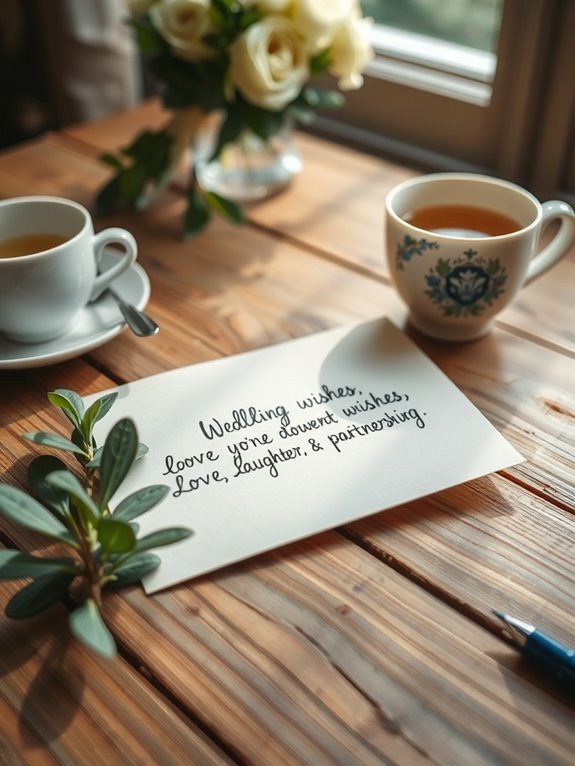 Wedlling wishes,
loove yo're dowent wishes,
Love, laughter, & partnershing.